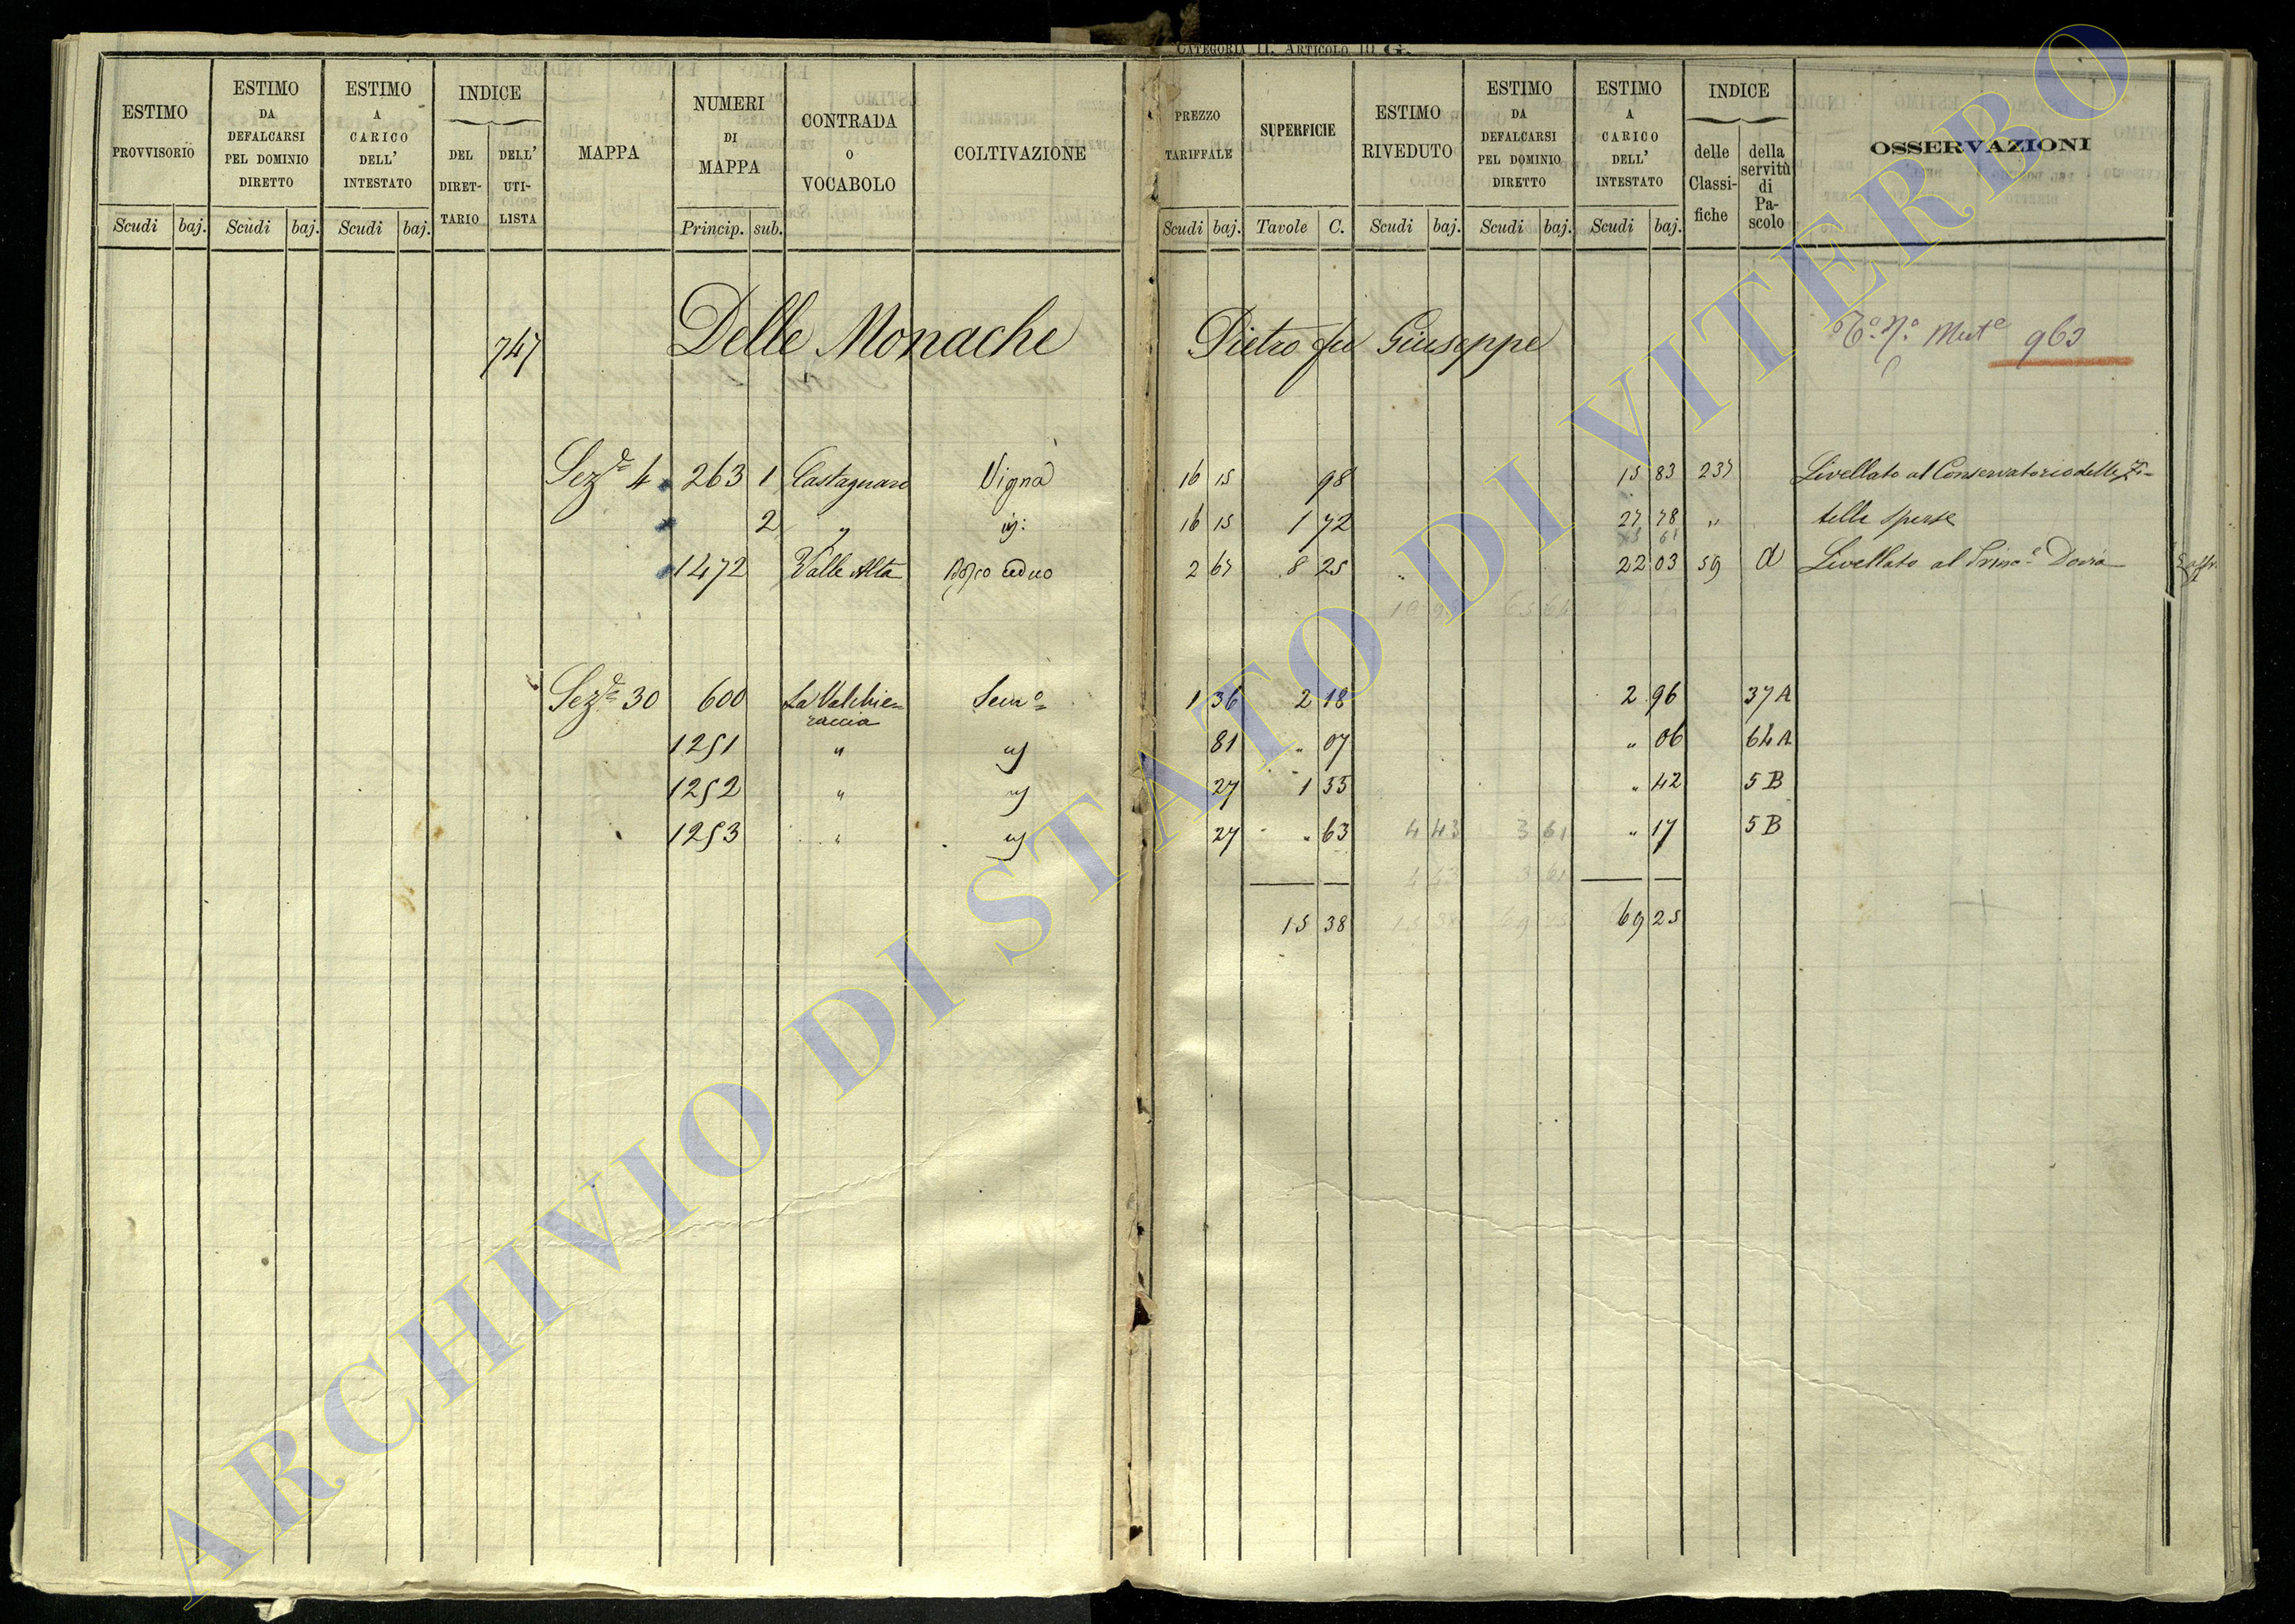 CATEGORIA II. ARTICOLO 10 G.
ESTIMO PROVVISORIO Scudi baj.
ESTIMO DA DEFALCARSI PEL DOMINIO DIRETTO Scudi baj.
ESTIMO A CARICO DELL' INTESTATO Scudi baj.
INDICE DEL DIRET- TARIO DELL' UTI- LISTA
MAPPA
NUMERI DI MAPPA Princip. sub.
CONTRADA O VOCABOLO
COLTIVAZIONE
PREZZO TARIFFALE Scudi baj.
SUPERFICIE Tavole C.
ESTIMO RIVEDUTO Scudi baj.
ESTIMO DA DEFALCARSI PEL DOMINIO DIRETTO Scudi baj.
ESTIMO A CARICO DELL' INTESTATO Scudi baj.
INDICE delle Classi- fiche della servitù di Pa- scolo
OSSERVAZIONI
747 Delle Monache Pietro fu Giuseppe 963
Sez.e 4 263 1 Castagnaro Vigna 16 15 98 15 83 237 Livellato al Conservatorio delle Zi-
2 " 16 15 1 72 27 78 " telle Sperse
1472 Valle Alta Bosco ceduo 2 67 8 25 22 03 59 a Livellato al Princ.e Doria
65 64
Sez.e 30 600 La Valchie- Sem.o 1 36 2 18 2 96 37 A
raccia
1251 " 81 " 07 " 06 64 A
1252 " 27 1 55 " 42 5 B
1253 " 27 " 63 4 43 3 61 " 17 5 B
4 43 3 61
15 38 15 38 69 25 69 25
ARCHIVIO DI STATO DI VITERBO